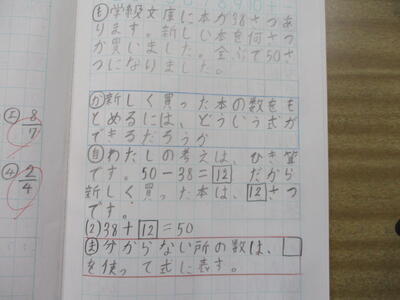 も学級文庫に本が38さつあ
ります。新しい本を何さつ
か買いました。全ぶで50さ
つになりました。
か新しく買った本の数をも
とめるには、どういう式が
できるだろうか
自わたしの考えは、ひき算
です。50-38=12 だから
新しく買った本は、12さつ
です。
(2)38+12=50
ま分からない所の数は、□
を使って式に表す。
② 8/7
④ 2/4